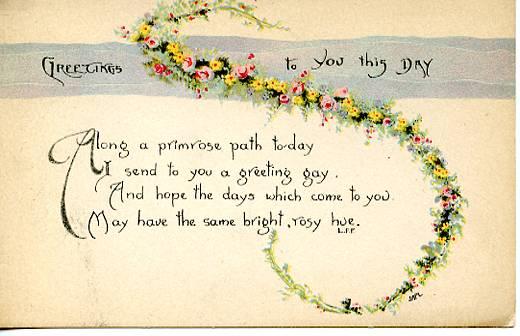 GREETINGS to you this DAY
Along a primrose path to-day
I send to you a greeting gay.
And hope the days which come to you.
May have the same bright, rosy hue.
L.F.F.